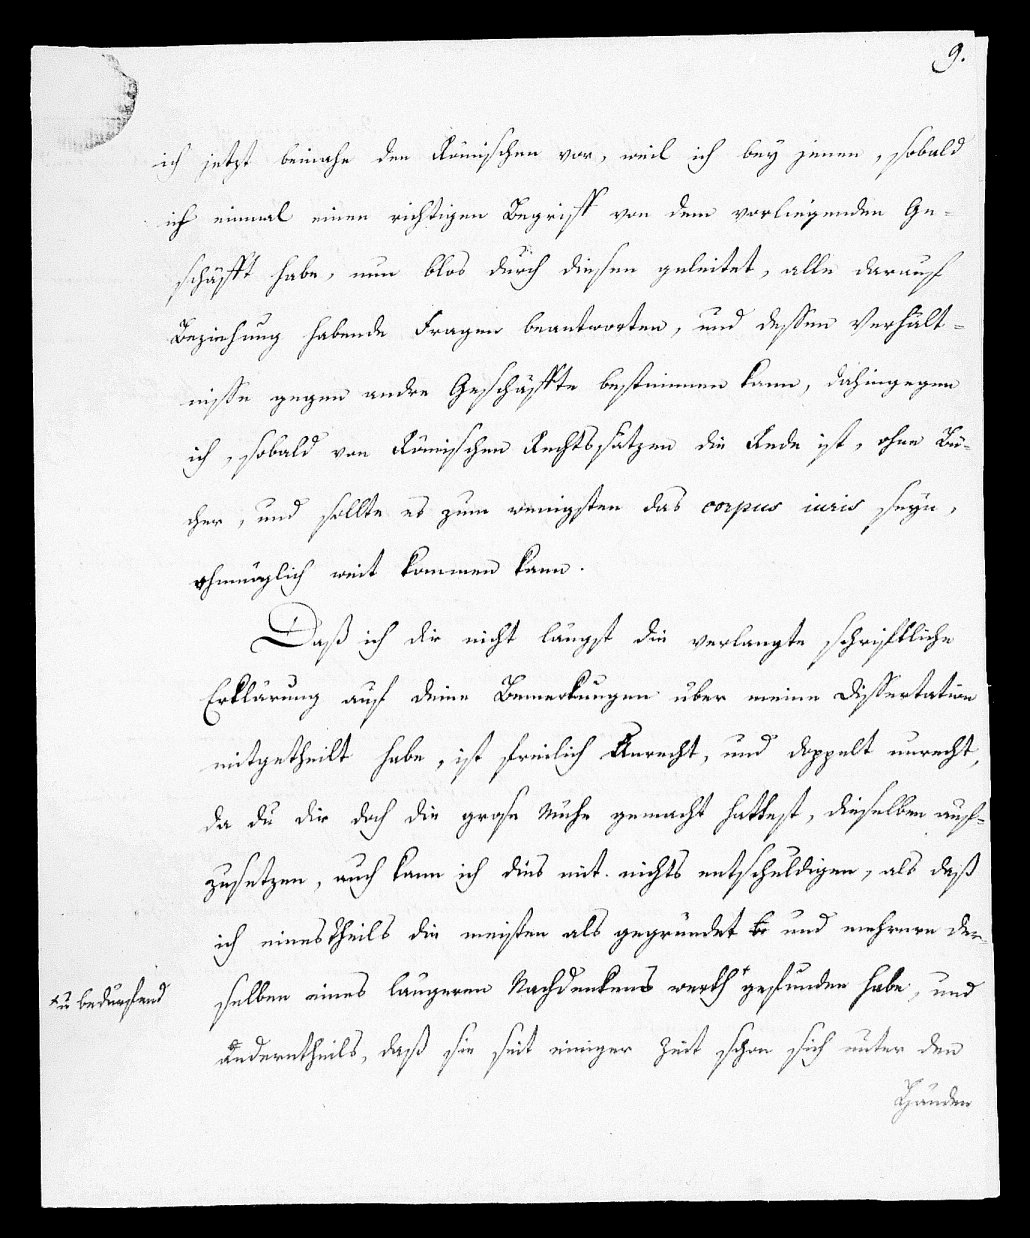 9.
ich jetzt beinahe den Römischen vor, weil ich bey jenen, sobald
ich einmal einen richtigen Begriff von dem vorliegenden Ge-
schäfft habe, nun blos durch diesen geleitet, alle darauf
Beziehung habende Fragen beantworten, und dessen Verhält-
nisse gegen andre Geschäffte bestimmen kann, dahingegen
ich, sobald von Römischen Rechtssätzen die Rede ist, ohne Bü-
cher, und sollte es zum wenigsten das corpus iuris seyn,
ohnmöglich weit kommen kann.
Daß ich dir nicht längst die verlangte schriftliche
Erklärung auf deine Bemerkungen über meine Dissertation
mitgetheilt habe, ist freilich Unrecht, und doppelt unrecht,
da du dir doch die grose Mühe gemacht hattest, dieselben auf-
zusetzen, auch kann ich dies mit nichts entschuldigen, als daß
ich eines theils die meisten als gegründet und mehrere der-
selben eines längeren Nachdenkens werth + gefunden habe, und
+ u bedürfend
anderntheils, daß sie seit einiger Zeit schon sich unter den
Händen